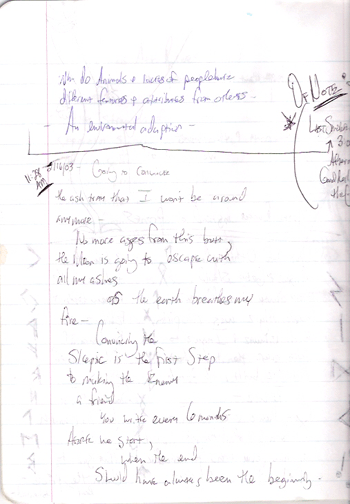 Why do Animals & Insects & people have
different features & attributes from others -
An environmental adaption -
Of Note
11:28 AM
/16/03 - Going to Convince
the ash tray that I won't be around
anymore -
No more ages from this butt,
the Moon is going to escape with
all my ashes
as the earth breathes my
fire -
Convincing the
Skeptic is the First Step
to making the Enemy
a friend
You write every 6 months
After the start,
when the end
Should have always been the beginning.